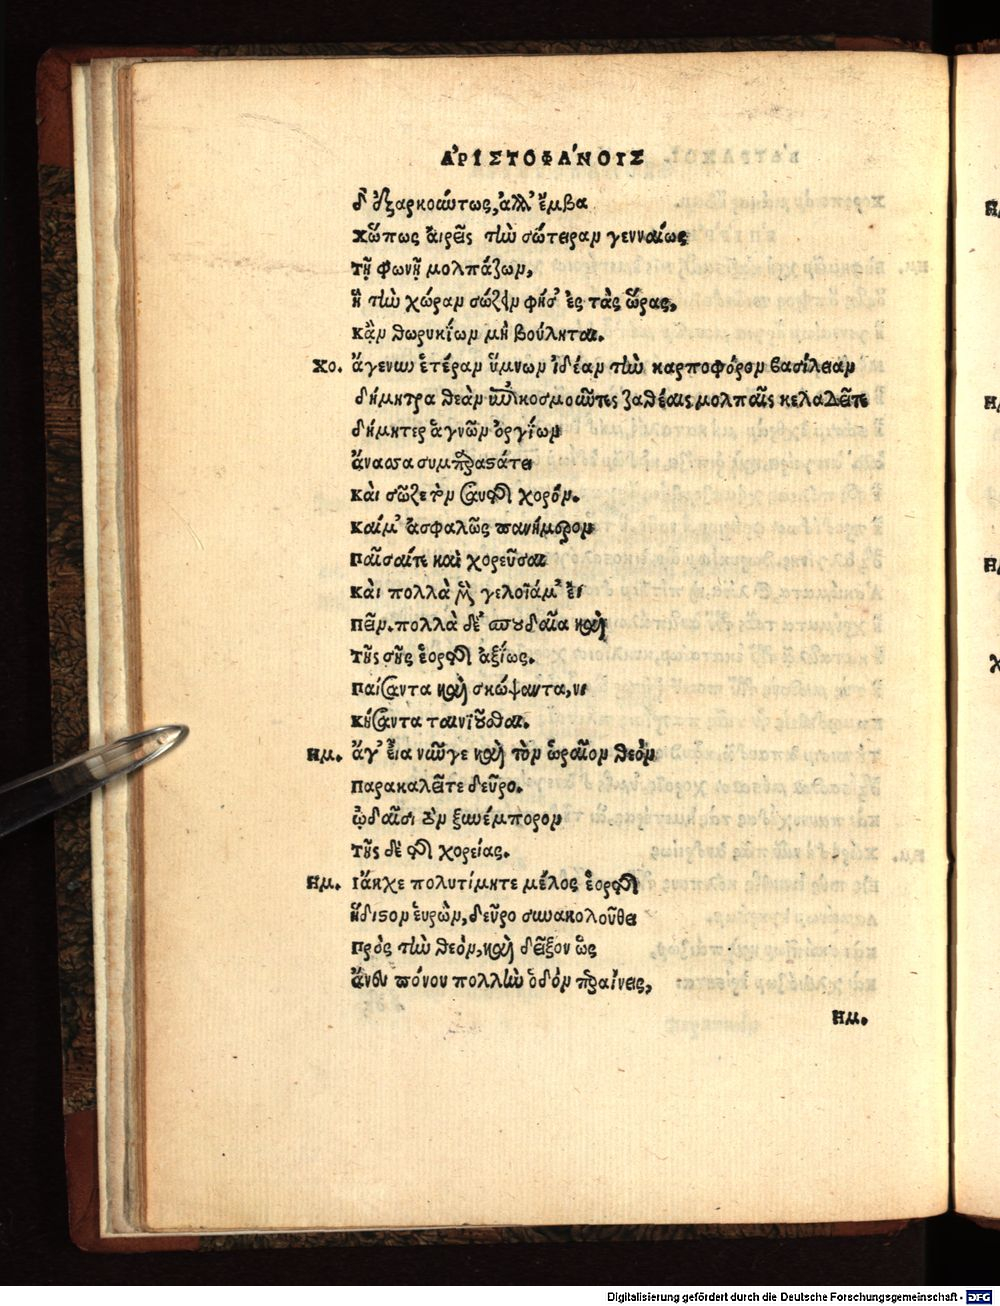 ἈΡΙΣΤΟΦΆΝΟΥΣ
δ' ἐξαρκούντως, ἀλλ' ἔμβα
χὥπως αἱρεῖς τὴν σώτειραν γενναίως
τῇ φωνῇ μολπάζων,
ἣ τὴν χώραν σώζειν φήσ' ἐς τὰς ὥρας,
κἂν θωρυκίων μὴ βούληται.
ΧΟ. ἄγε νυν ἑτέραν ὕμνων ἰδέαν τὴν καρποφόρον βασίλειαν
δήμητρα θεὰν ἐπικοσμοῦντες ζαθέαις μολπαῖς κελαδεῖτε
δήμητερ ἁγνῶν ὀργίων
ἄνασσα συμπαραστάτει
καὶ σῶζε τὸν σαυτῆς χορόν.
καί μ' ἀσφαλῶς πανήμερον
παῖσαίτε καὶ χορεῦσαι
καὶ πολλὰ μὲν γελοῖά μ' εἰ
πεῖν. πολλὰ δὲ σπουδαῖα καὶ
τῆς σῆς ἑορτῆς ἀξίως.
παίσαντα καὶ σκώψαντα, νι
κήσαντα ταινιοῦσθαι.
Ημ. ἄγ' εἶα νῦν γε καὶ τὸν ὡραῖον θεὸν
παρακαλεῖτε δεῦρο.
ᾠδαῖσι τὸν ξυνέμπορον
τῆς δὲ τῆς χορείας.
Ημ. ἴακχε πολυτίμητε μέλος ἑορτῆς
ἥδιστον εὑρὼν, δεῦρο συνακολούθει
πρὸς τὴν θεὸν, καὶ δεῖξον ὡς
ἄνευ πόνου πολλὴν ὁδὸν περαίνεις,
Ημ.
Digitalisierung gefördert durch die Deutsche Forschungsgemeinschaft - DFG